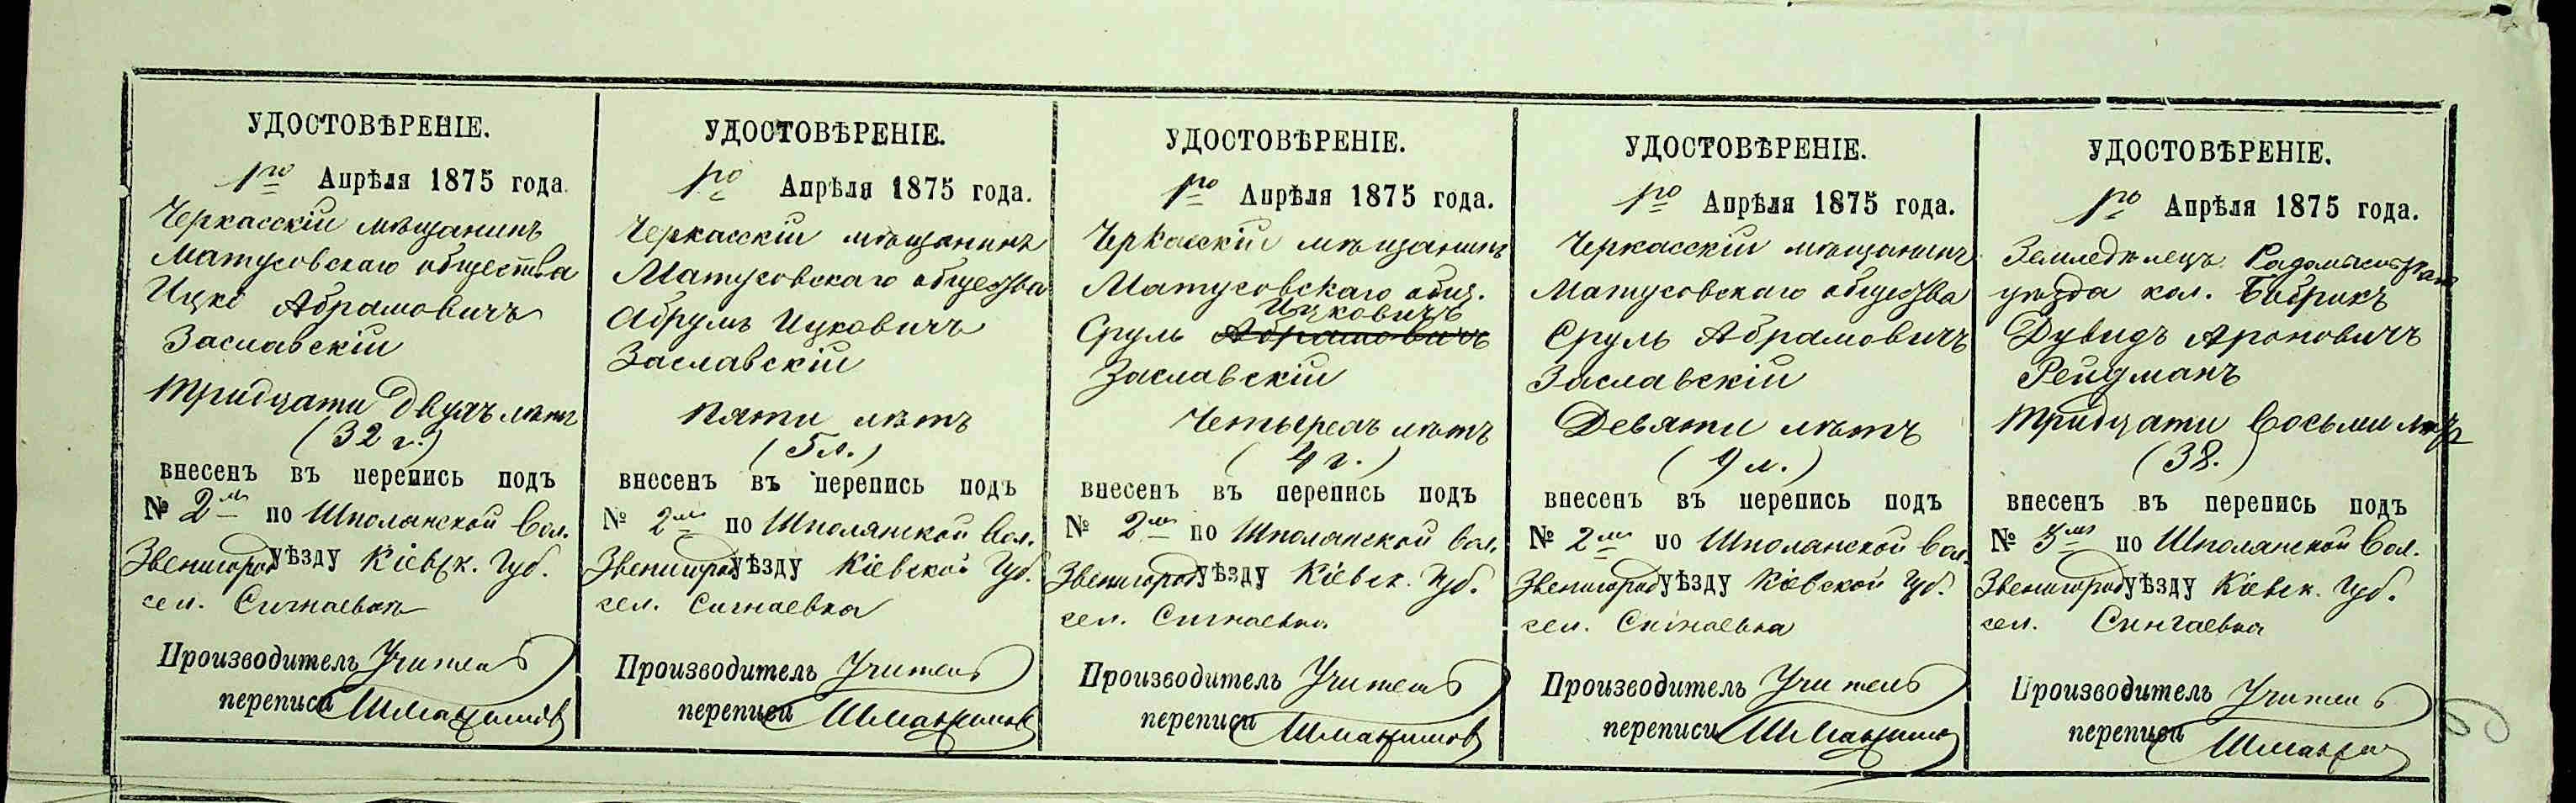 УДОСТОВѢРЕНІЕ.
1го Апрѣля 1875 года.
Черкасскій мѣщанинъ
Матусовскаго общества
Ицко Абрамовичъ
Заславскій
Тридцати двухъ лѣтъ
(32 г.)
внесенъ въ перепись подъ
№ 2мъ по Шполянской вол.
Звенигород уѣзду Кіевск. Губ.
сел. Сигнаевка
Производитель Учитель
переписи
УДОСТОВѢРЕНІЕ.
1го Апрѣля 1875 года.
Черкасскій мѣщанинъ
Матусовскаго общества
Абрумъ Ицковичъ
Заславскій
Пяти лѣтъ
(5 л.)
внесенъ въ перепись подъ
№ 2мъ по Шполянской вол.
Звенигород уѣзду Кіевской Губ.
сел. Сигнаевка
Производитель Учитель
переписи
УДОСТОВѢРЕНІЕ.
1го Апрѣля 1875 года.
Черкасскій мѣщанинъ
Матусовскаго общ.
Ицковичъ
Сруль Абрамовичъ
Заславскій
Четырехъ лѣтъ
(4 г.)
внесенъ въ перепись подъ
№ 2мъ по Шполянской вол.
Звенигород уѣзду Кіевск. Губ.
сел. Сигнаевка
Производитель Учитель
переписи
УДОСТОВѢРЕНІЕ.
1го Апрѣля 1875 года.
Черкасскій мѣщанинъ
Матусовскаго общества
Сруль Абрамовичъ
Заславскій
Девяти лѣтъ
(9 л.)
внесенъ въ перепись подъ
№ 2мъ по Шполянской вол.
Звенигород уѣзду Кіевской Губ.
сел. Сигнаевка
Производитель Учитель
переписи
УДОСТОВѢРЕНІЕ.
1го Апрѣля 1875 года.
Земледѣлецъ
уѣзда кол. Бобрикъ
Дувидъ Ароновичъ
Рейдманъ
Тридцати восьми лѣтъ
(38.)
внесенъ въ перепись подъ
№ 3мъ по Шполянской вол.
Звенигород уѣзду Кіевск. Губ.
сел. Сингаевка
Производитель Учитель
переписи